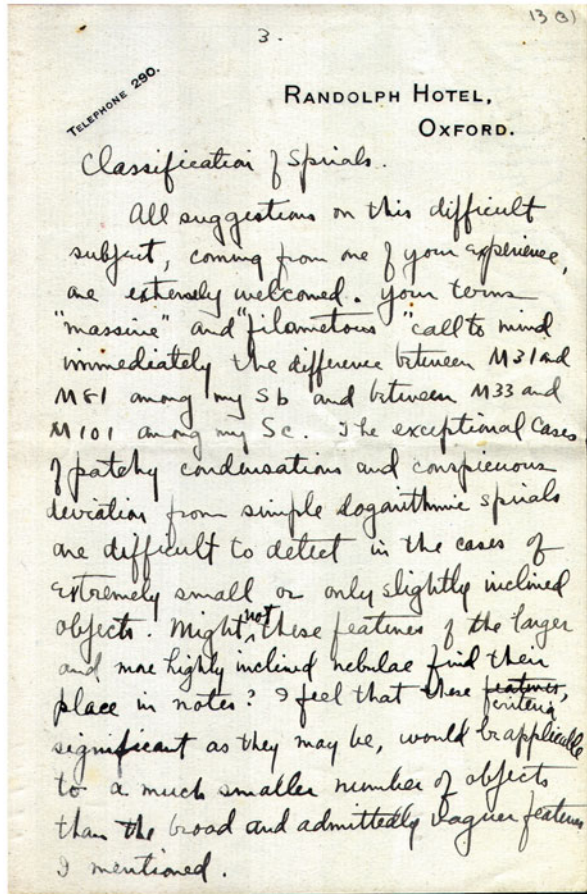 13 (3)
3.
TELEPHONE 290.
RANDOLPH HOTEL,
OXFORD.
Classification of Spirals.
All suggestions on this difficult
subject, coming from one of your experience,
are extremely welcomed. Your terms
"massive" and "filametous" call to mind
immediately the difference between M31 and
M81 among my Sb and between M33 and
M101 among my Sc. The exceptional cases
of patchy condensations and conspicuous
deviation from simple logarithmic spirals
are difficult to detect in the cases of
extremely small or only slightly inclined
objects. Might not these features of the larger
and more highly inclined nebulae find their
place in notes? I feel that these features, criteria
significant as they may be, would be applicable
to a much smaller number of objects
than the broad and admittedly vaguer features
I mentioned.